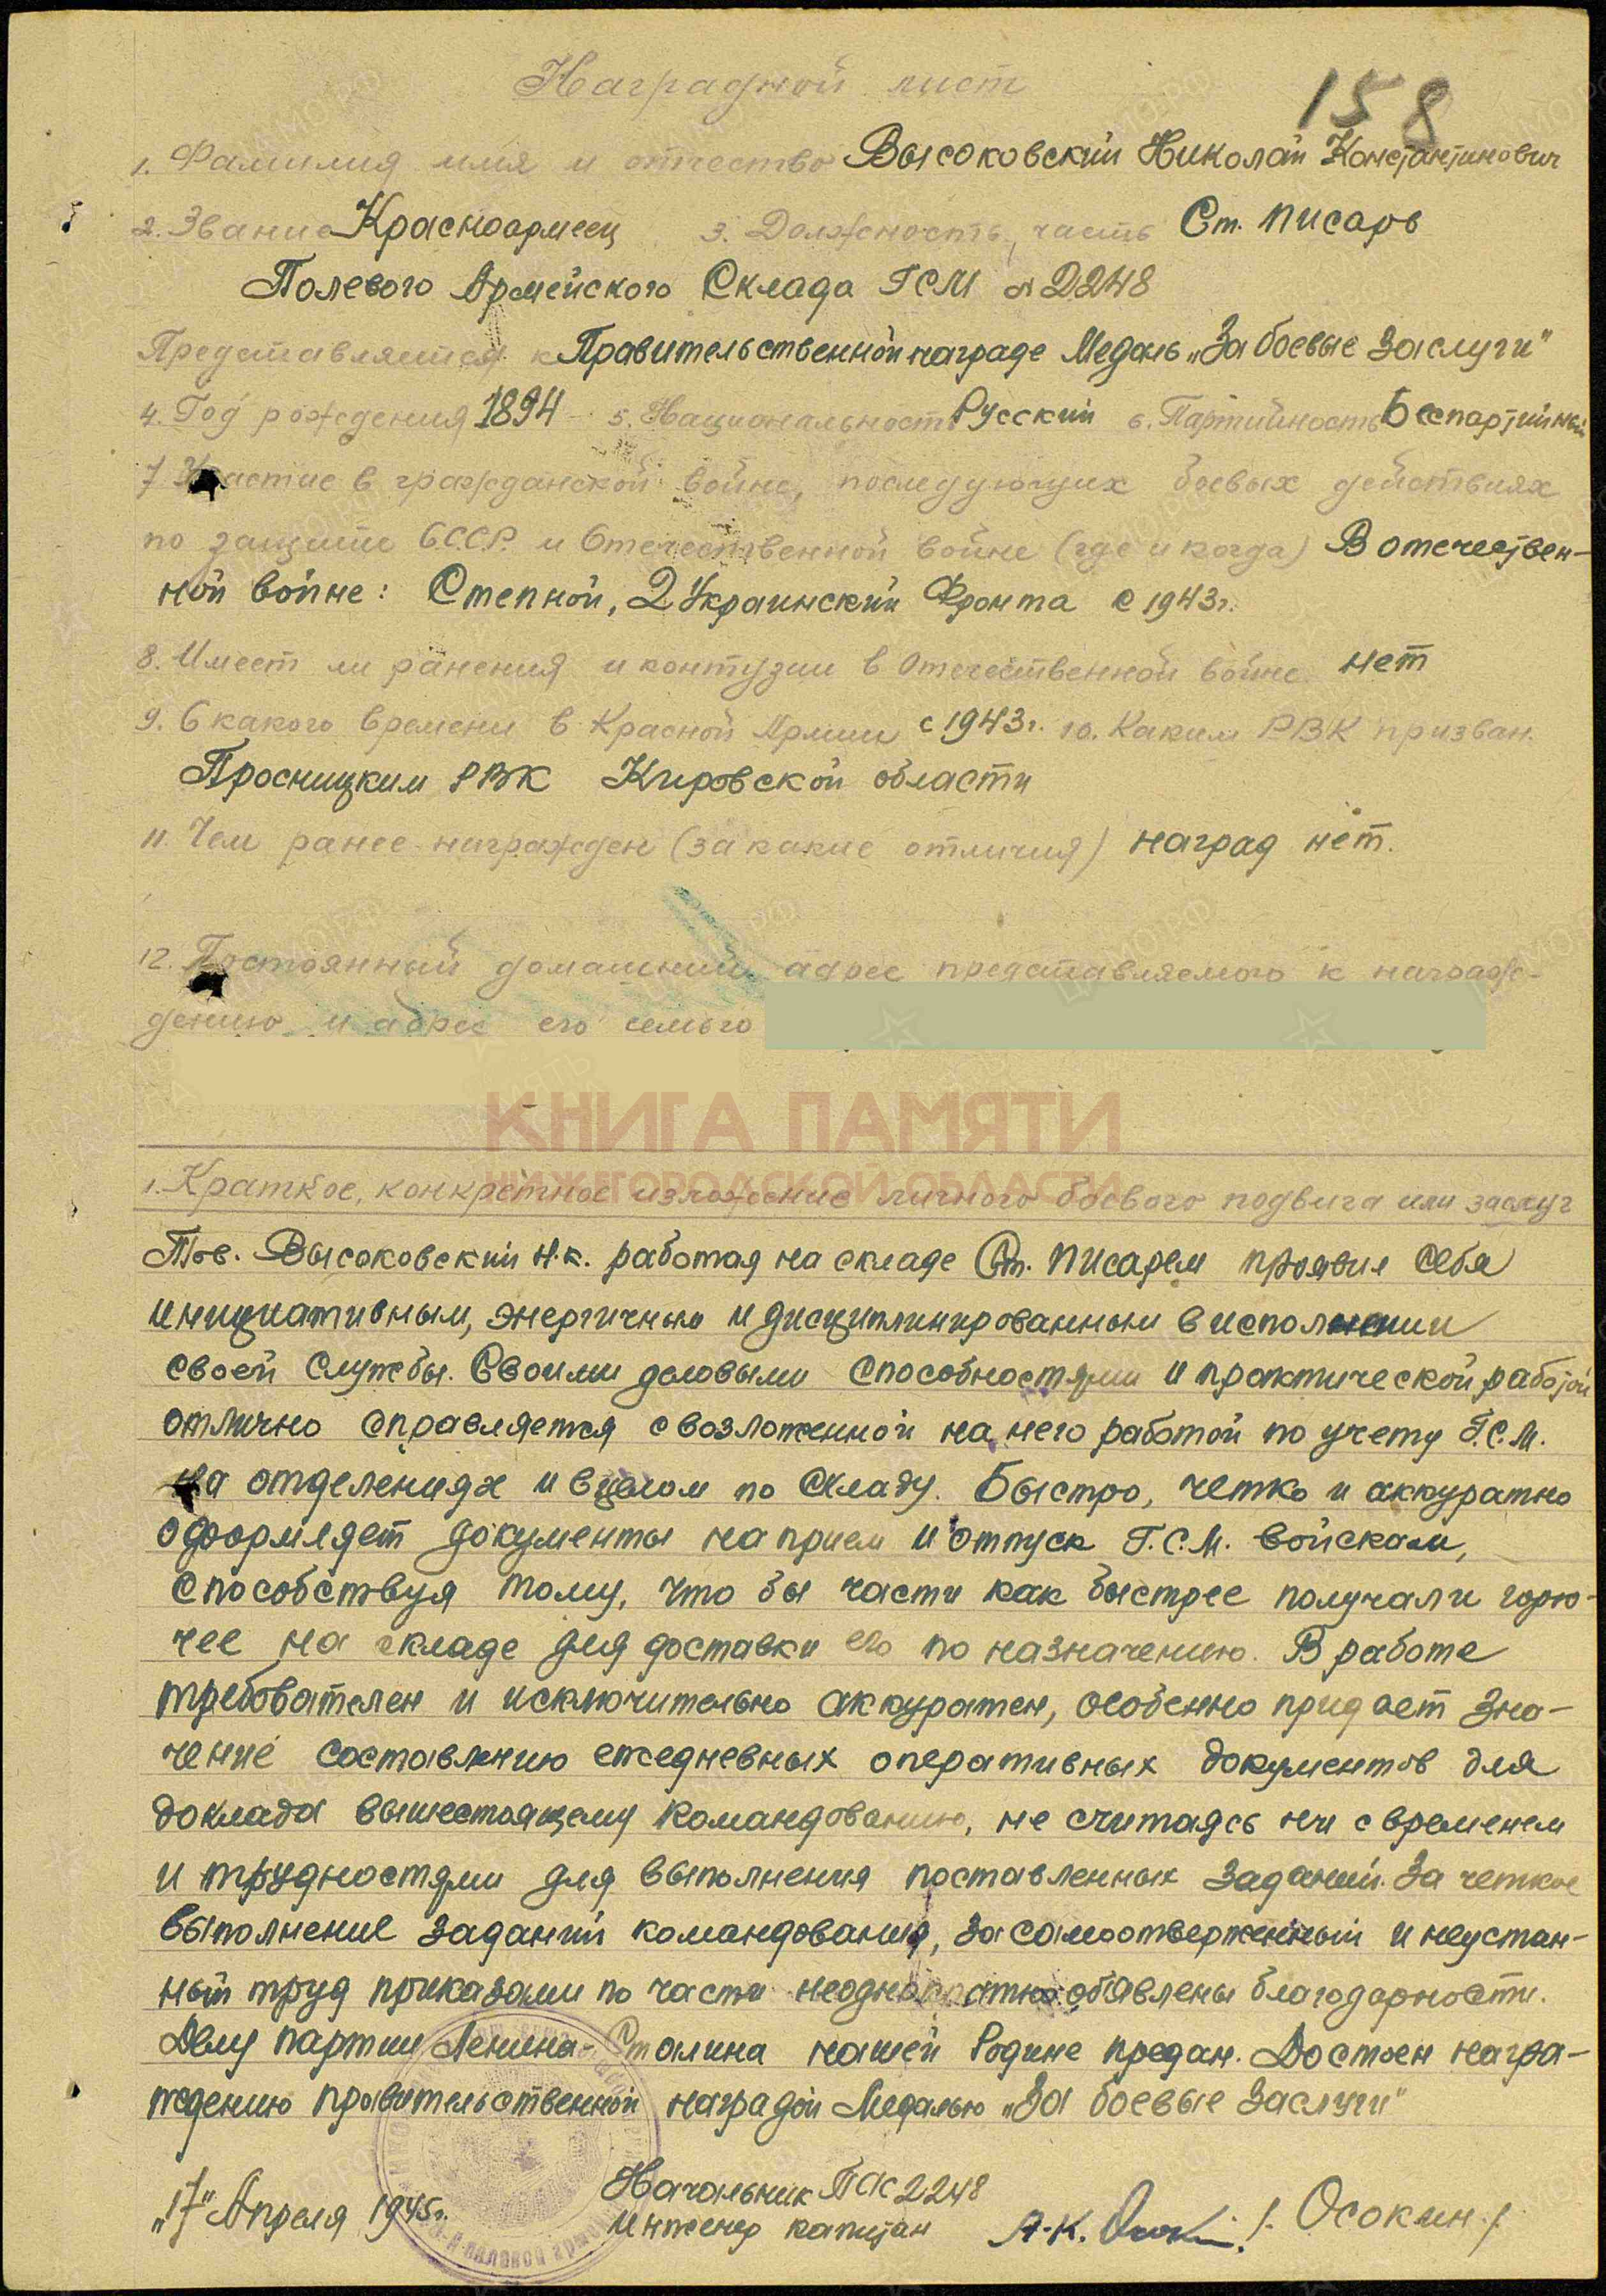 Наградной лист
158
1. Фамилия имя и отчество Высоковский Николай Константинович
2. Звание Красноармеец 3. Должность, часть Ст. писарь
Полевого Армейского Склада ГСМ № 2248
Представляется к Правительственной награде Медаль „За боевые заслуги"
4. Год рождения 1894 5. Национальность Русский 6. Партийность Беспартийный
7 Участие в гражданской войне, последующих боевых действиях
по защите С.С.С.Р. и Отечественной войне (где и когда) В отечествен-
ной войне: Степной, 2 Украинский Фронта с 1943г.
8. Имеет ли ранения и контузии в Отечественной войне. нет
9. С какого времени в Красной Армии с 1943г. 10. Каким РВК призван.
Просницким РВК Кировской области
11. Чем ранее награжден (за какие отличия) наград нет.
12. Постоянный домашний адрес представляемого к награж-
дению и адрес его семьи
КНИГА ПАМЯТИ
НИЖЕГОРОДСКОЙ ОБЛАСТИ
1. Краткое, конкретное изложение личного боевого подвига или заслуг
Тов. Высоковский Н.К. работая на складе Ст. писарем проявил себя
инициативным, энергичным и дисциплинированным в исполнении
своей службы. Своими деловыми способностями и практической работой
отлично справляется с возложенной на него работой по учету Г.С.М.
на отделениях и вцелом по складу. Быстро, четко и аккуратно
оформляет документы на прием и отпуск Г.С.М. войскам,
способствуя тому, что бы части как быстрее получали горю-
чее на складе для доставки его по назначению. В работе
требователен и исключительно аккуратен, особенно придает зна-
чение составлению ежедневных оперативных документов для
доклада вышестоящему командованию, не считаясь ни с временем
и трудностями для выполнения поставленных заданий. За четкое
выполнение заданий командования, за самоотверженный и неустан-
ный труд приказами по части неоднократно обявлены благодарности.
Делу партии Ленина-Сталина нашей Родине предан. Достоен награ-
ждению правительственной наградой Медалью „За боевые заслуги"
„17" Апреля 1945г.
Начальник ПАС 2248
Инженер капитан А.К. /Осокин/